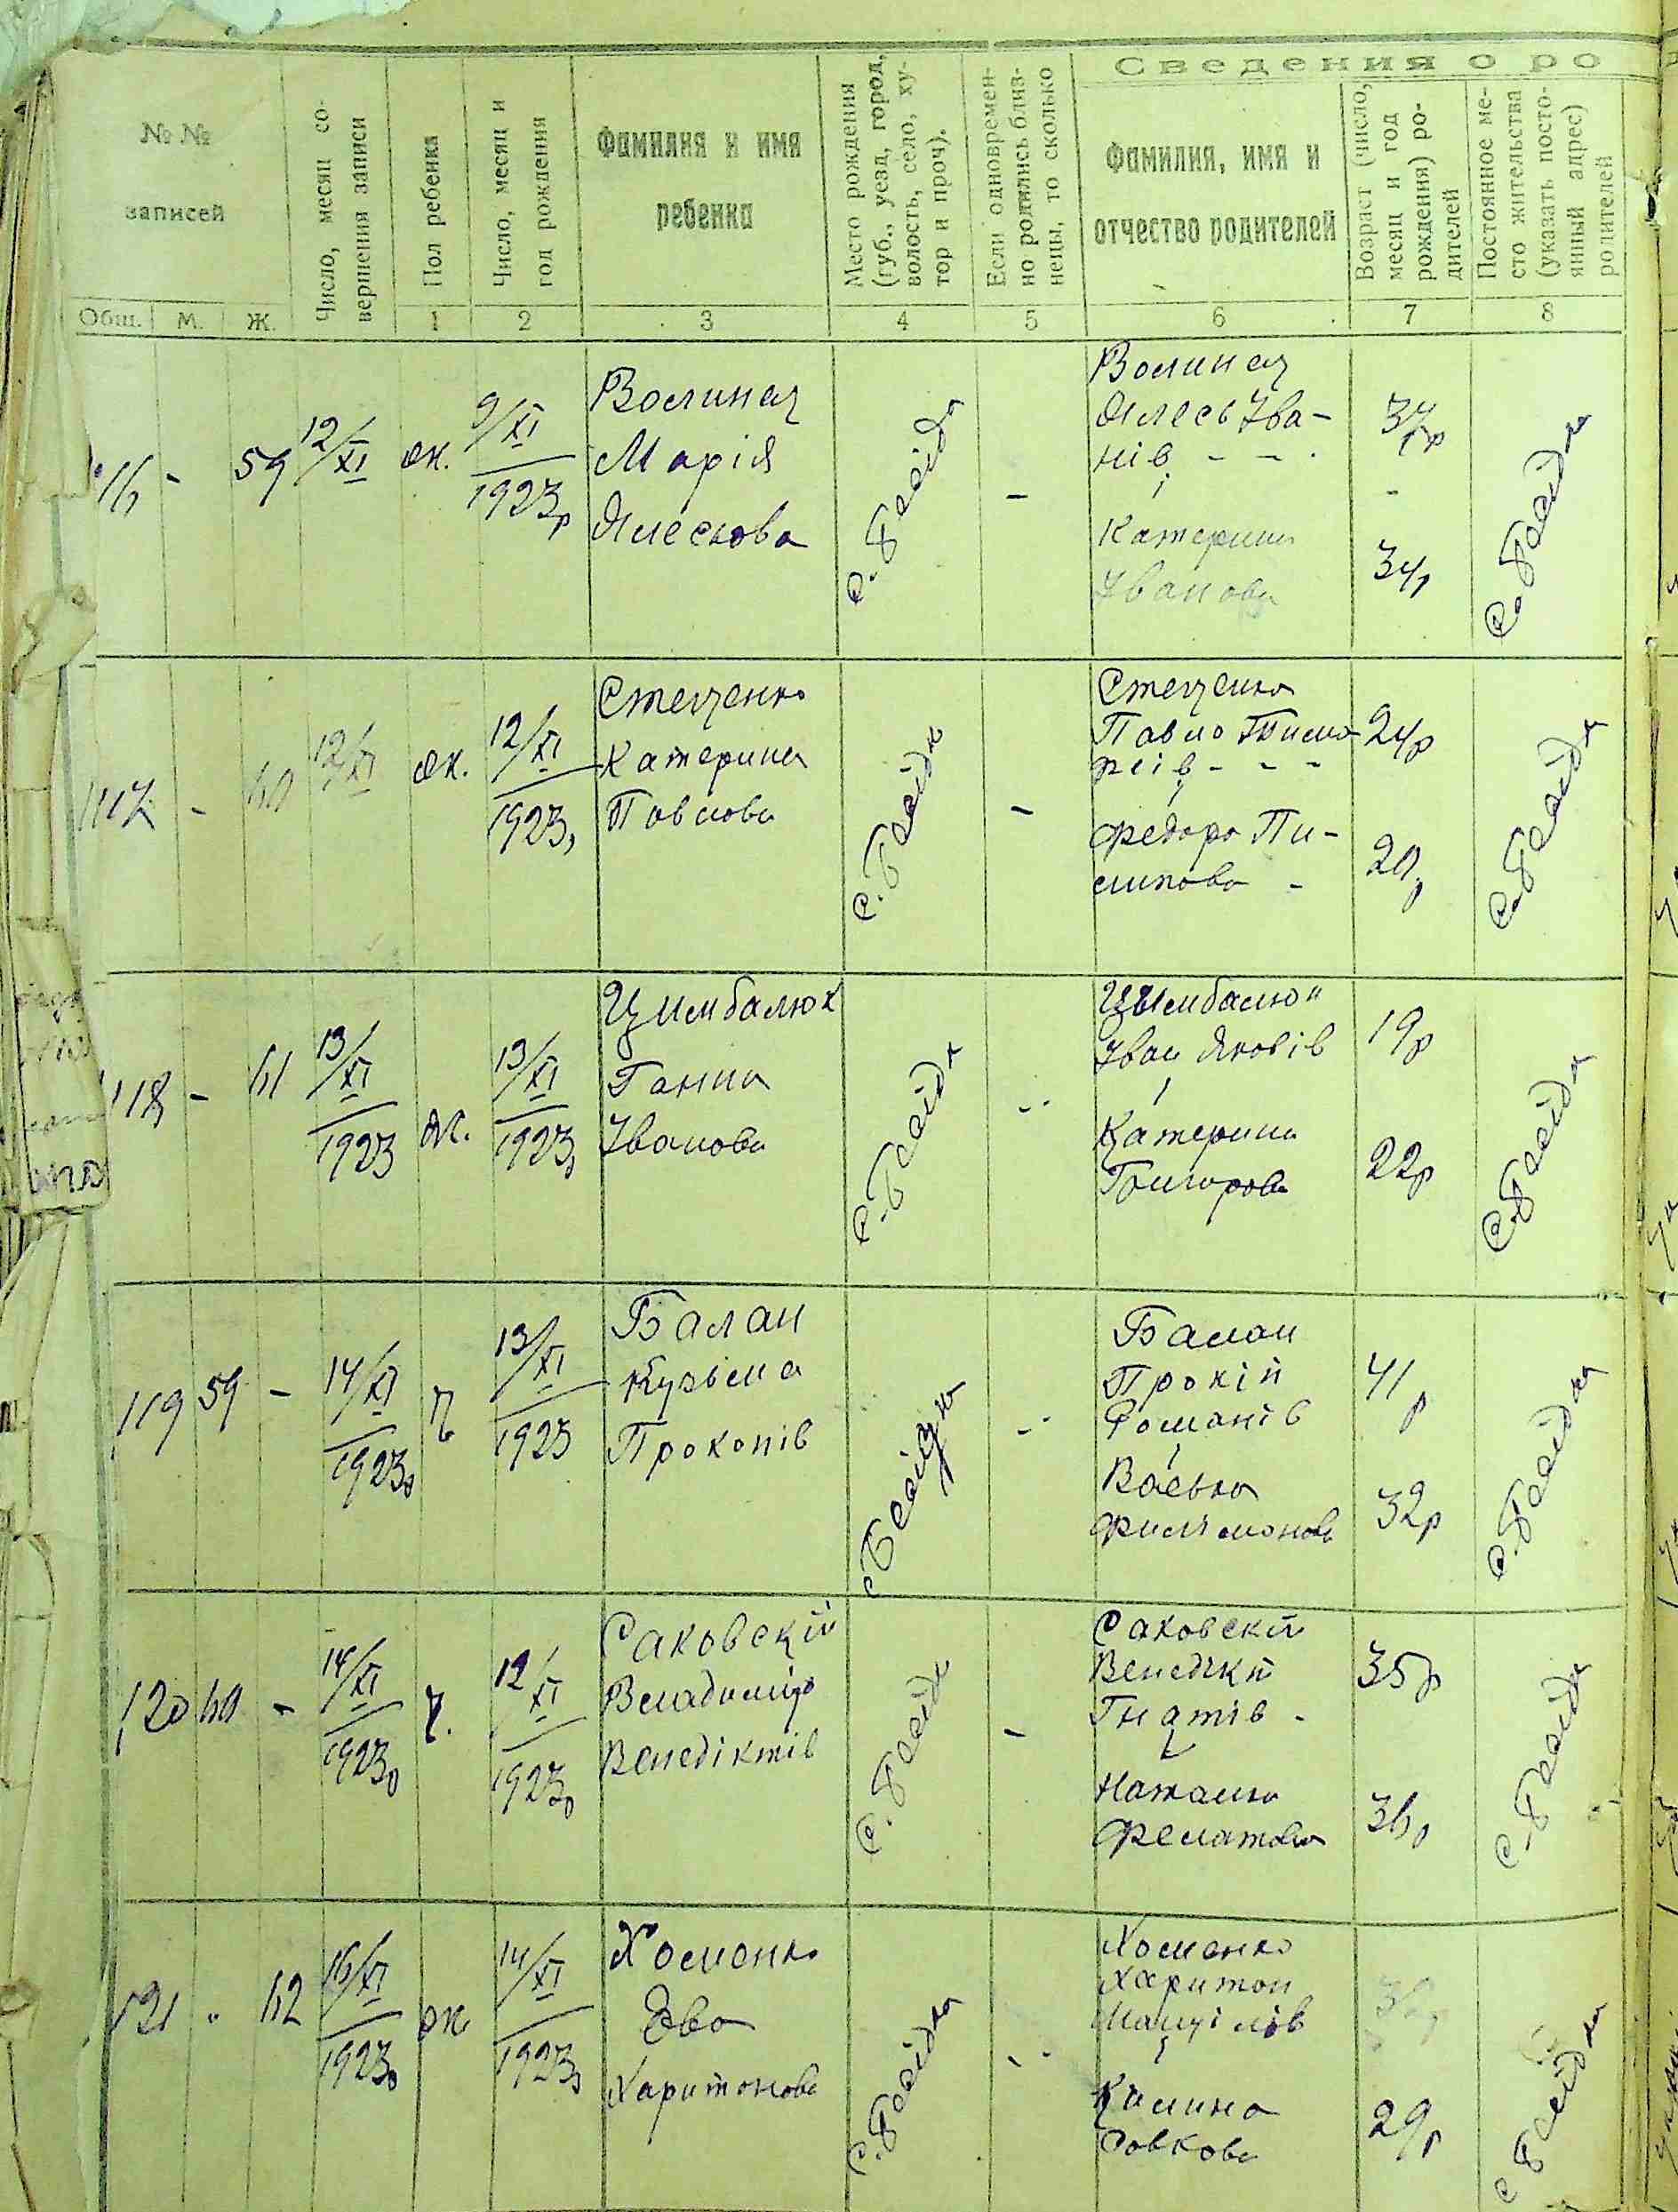 Сведения о ро
№ №
записей
Число, месяц со-
вершения записи
Пол ребенка
Число, месяц и
год рождения
Фамилия и имя
ребенка
Место рождения
(губ., уезд, город,
волость, село, ху-
тор и проч).
Если одновремен-
но родились близ-
нецы, то сколько
Фамилия, имя и
отчество родителей
Возраст (число,
месяц и год
рождения) ро-
дителей
Постоянное ме-
сто жительства
(указать посто-
янный адрес)
родителей
Общ. М. Ж. 1 2 3 4 5 6 7 8
59
12/XI
ж.
9/XI
1923р
Волинец
Марія
Олесьова
-
Волинец
Олесь Іва-
нів - -
і
Катерина
Іванова
37р
34р
117 - 60
12/XI
ж.
12/XI
1923р
Стеценко
Катерина
Павлова
-
Стеценко
Павло Тимо-
реів - - -
Федора Пи-
липова -
24р
20р
118 - 61
13/XI
1923
ж.
13/XI
1923р
Цимбалюк
Ганна
Іванова
Цымбалюк
Іван Яковів
і
Катерина
Григорова
19р
22р
119 59 -
14/XI
1923р
ч
13/XI
1923
Балан
Кузьма
Прокопів
Балан
Прокіп
Романів
і
Васька
Филимонова
41р
32р
120 60 -
14/XI
1923р
ч.
12/XI
1923р
Саковскій
Владимір
Венедіктів
-
Саковскій
Венедікт
Гнатів -
і
Наталка
Филатова
35р
36р
121 - 62
16/XI
1923р
ж
14/XI
1923р
Хоменко
Ева
Харитонова
Хоменко
Харитон
Мануілів
і
Килина
Савкова
29р